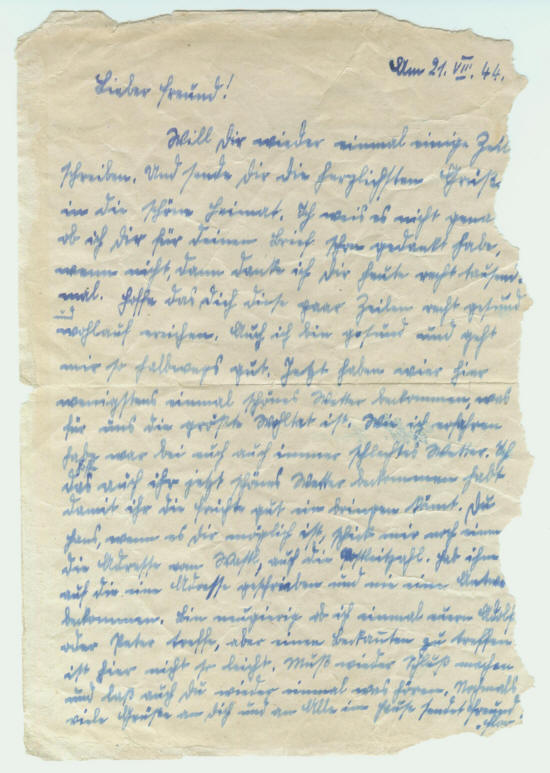 Am 21. VII. 44.
Lieber Freund!
Will Dir wieder einmal einige Zeil
schreiben. Und sende Dir die herzlichsten Grüß
in die schöne Heimat. Ich weis es nicht gena
ob ich Dir für Deinen Brief schon gedankt habe,
wenn nicht, dann danke ich Dir heute recht tausend
mal. Hoffe das Dich diese paar Zeilen recht gesund
und
wohlauf erreichen. Auch ich bin gesund und geht
mir so halbwegs gut. Jetzt haben wier hier
wenigstens einmal schönes Wetter bekommen, was
für uns die größte Wohltat ist. Wie ich erfahren
habe war bei euch auch immer schlechtes Wetter. Ich
das auch ihr jetzt schönes Wetter bekommen habt
damit ihr die Früchte gut ein bringen könnt. Du
Hans, wenn es dir möglich ist, schick mir noch einm
die Adresse vom, auch die. Hab ihm
auf die eine Adresse geschrieben und nie eine Antwo
bekommen. Bin neugierig ob ich einmal euern Adolf
oder Peter treffe, aber einen Bekanten zu treffen
ist hier nicht so leicht. Muß wieder schluß machen
und laß auch Du wieder einmal was hören. Nochmals
viele Grüße an Dich und an Alle im Hause sendet Freund